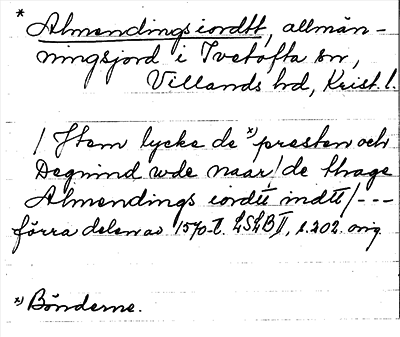 * Almendings iordtt, allmän-
ningsjord i Ivetofta sn,
Villands hd, Krist. l.
/ Item lycke de *) presten och
Degnind wde naar / de thrage
Almendings iordtt indtt / ---
förra delen av 1570-t. LSLB II, s. 202. orig.
*) Bönderne.